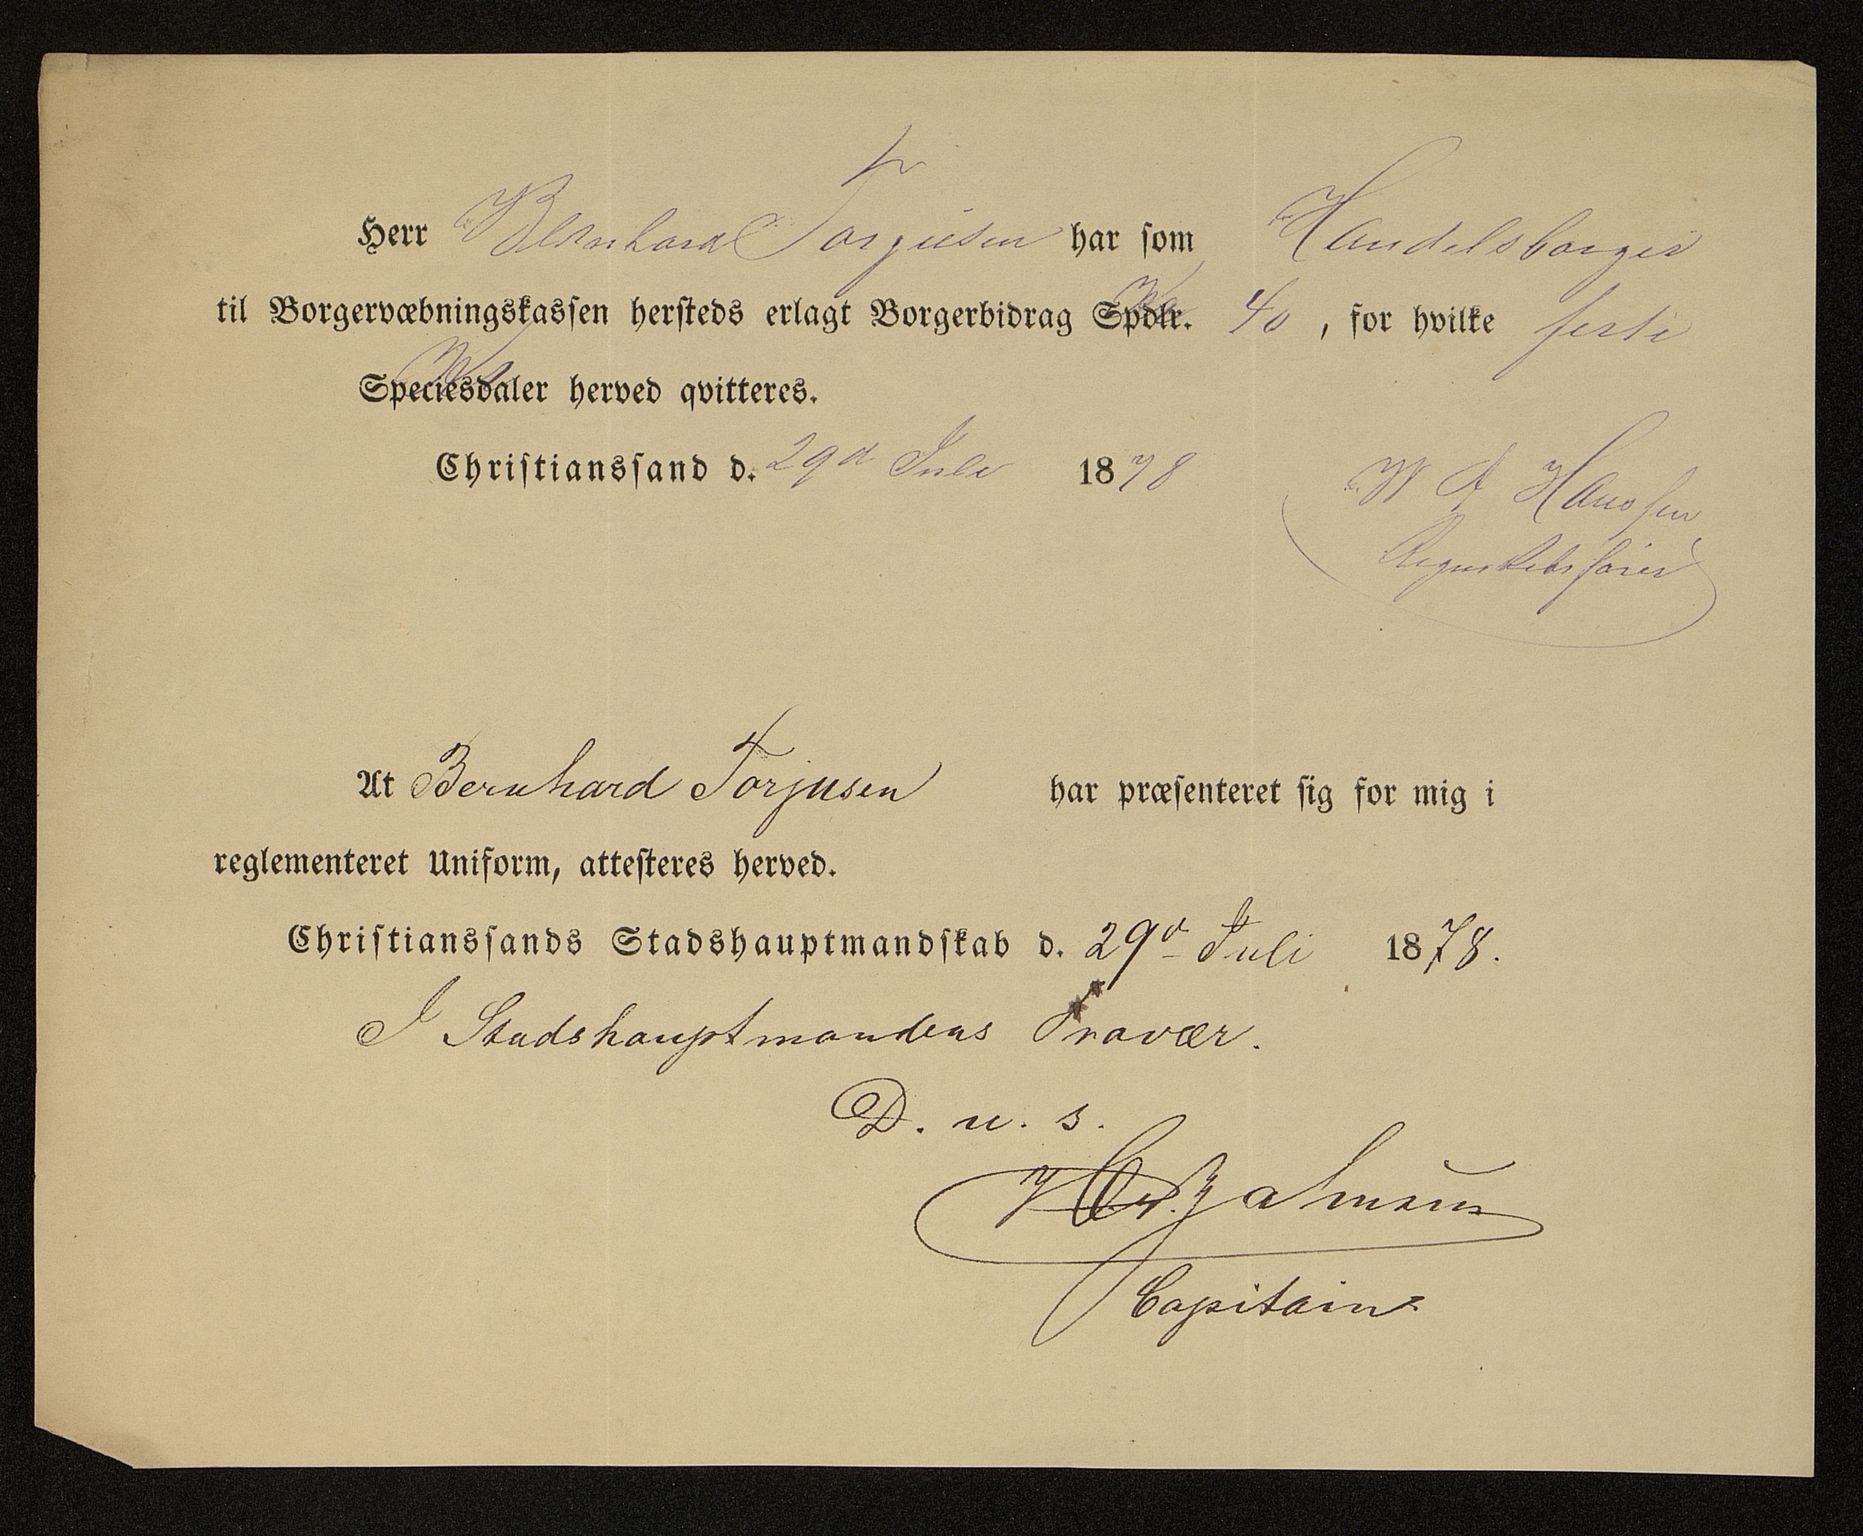 Herr Bernhard Torjusen har som Handelsborger
til Borgervæbningskassen hersteds erlagt Borgerbidrag Spdlr. Kr 40, for hvilke firti
Speciesdaler Kr herved qvitteres.
Christianssand d. 29d Juli 1878
W A Hansen
Regnskabsfører
At Bernhard Torjusen har præsenteret sig for mig i
reglementeret Uniform, attesteres herved.
Christianssands Stadshauptmandskab d. 29d Juli 1878.
I Stadshauptmandens Fravær.
D. u. s.
Capitain